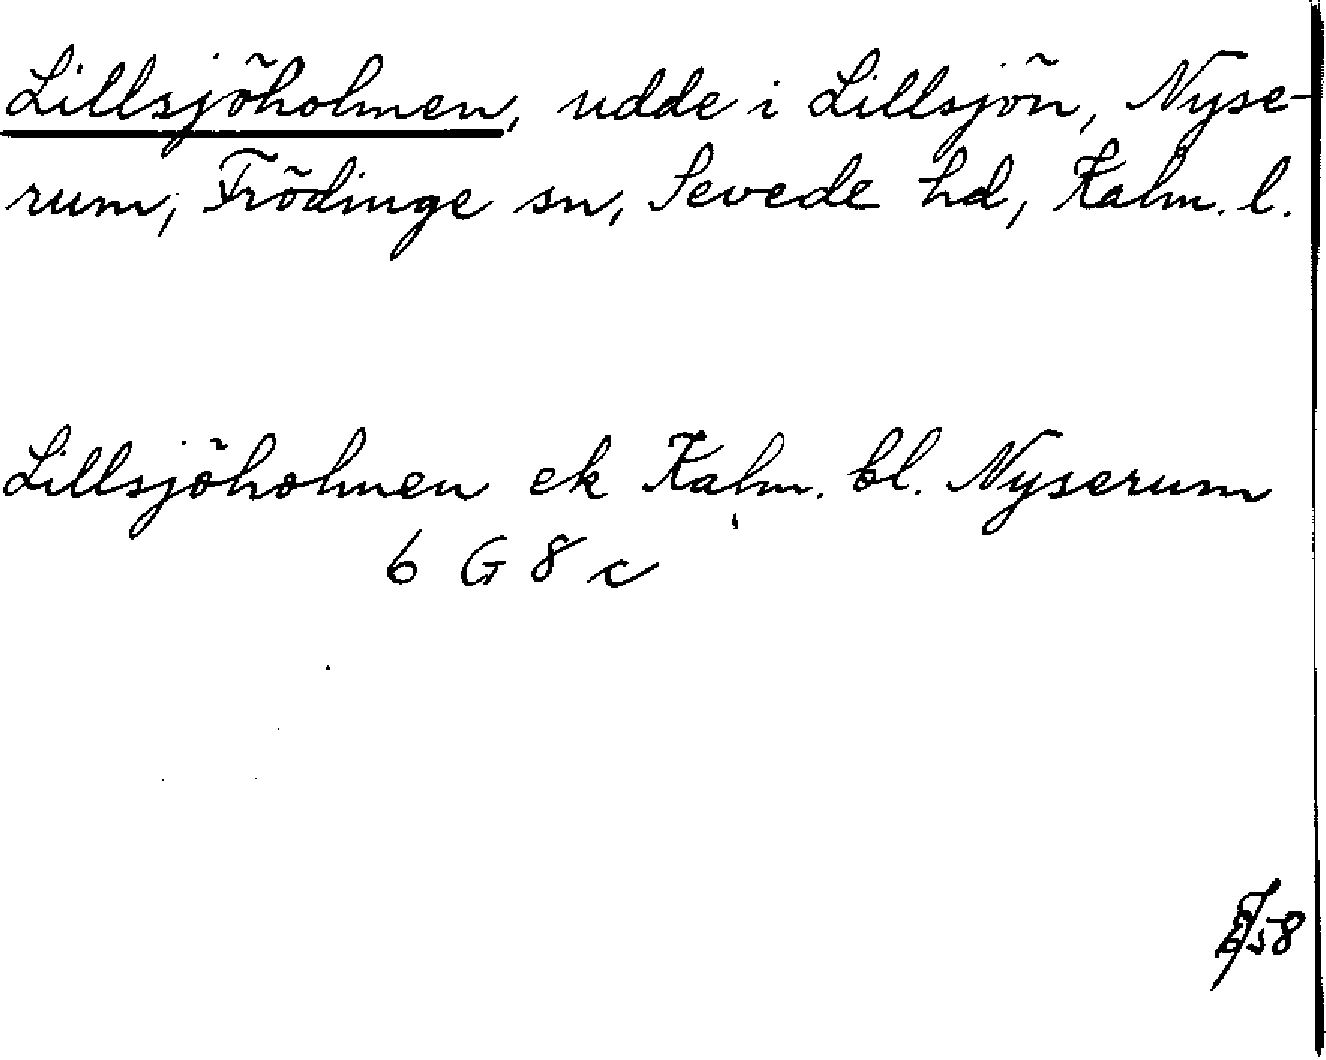 Lillsjöholmen, udde i Lillsjön, Nyse-
rum, Frödinge sn, Sevede hd, Kalm. l.
Lillsjöholmen ek Kalm. bl. Nyserum
6 G 8 c
58